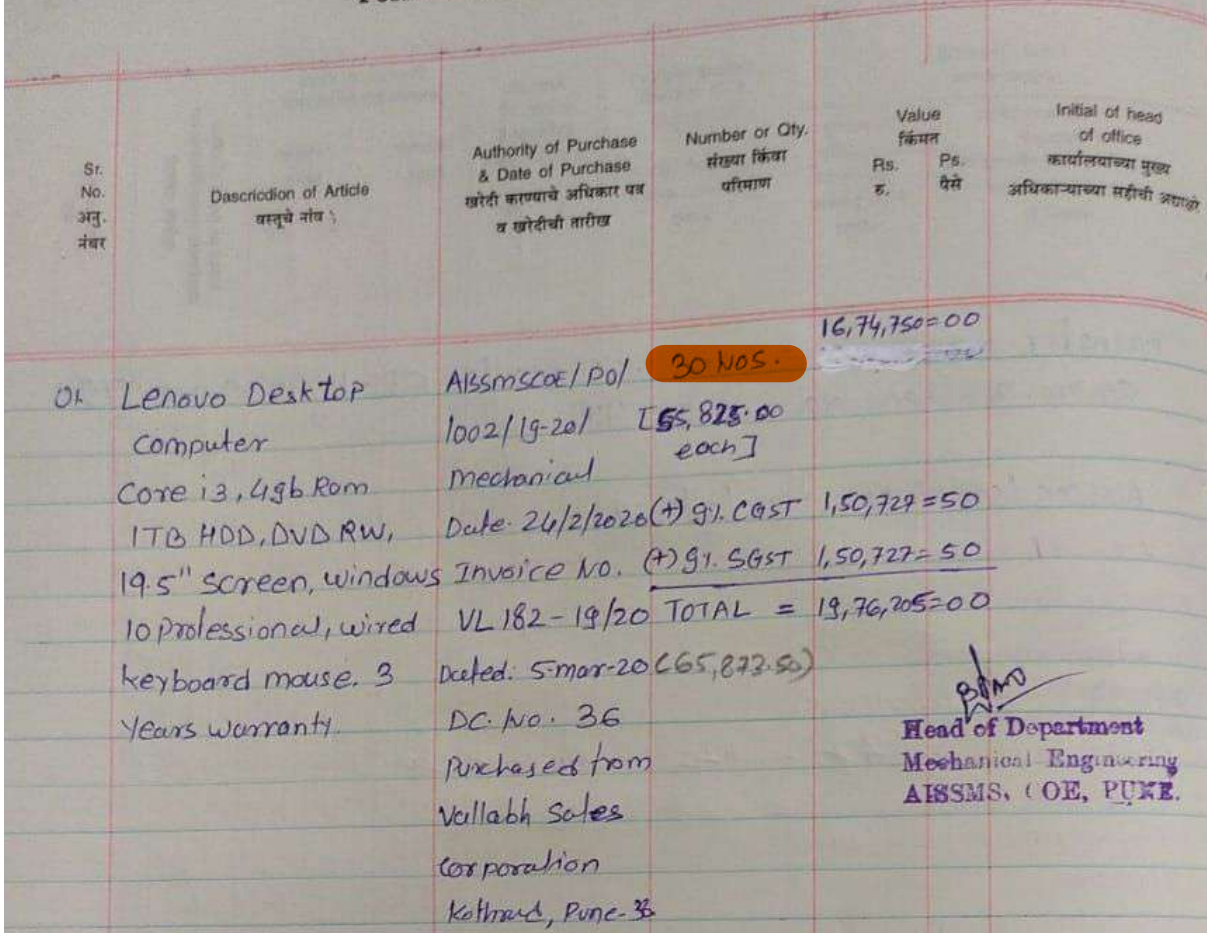 Sr.
No.
अनु.
नंबर
Dascricdion of Article
वस्तूचे नांव
Authority of Purchase
& Date of Purchase
खरेदी करण्याचे अधिकार पत्र
व खरेदीची तारीख
Number or Qty.
संख्या किंवा
परिमाण
Value
किंमत
Rs.
रु.
Ps.
पैसे
Initial of head
of office
कार्यालयाच्या मुख्य
अधिकाऱ्याच्या सहीची अद्याक्षरे
01.
Lenovo Desktop
Computer
Core i3, 4gb Rom
1TB HDD, DVD RW,
19.5" screen, windows
10 Professional, wired
keyboard mouse. 3
Years warranty.
AISSMSCOE/PO/
1002/19-20/
mechanical
Date. 24/2/2020
Invoice No.
VL 182-19/20
Dated: 5-mar-20
DC. No. 36
Purchased from
Vallabh Sales
Corporation
Kothrud, Pune-38
30 NOS.
[55,825.00
each]
(+) 9%. CGST
(+) 9%. SGST
TOTAL =
(65,873.50)
16,74,750=00
1,50,727=50
1,50,727=50
19,76,205=00
Head of Department
Mechanical Engineering
AISSMS, COE, PUNE.